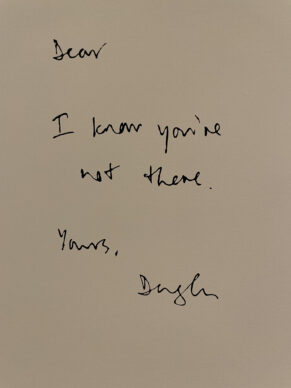 Dear
I know you're
not there.
Yours,